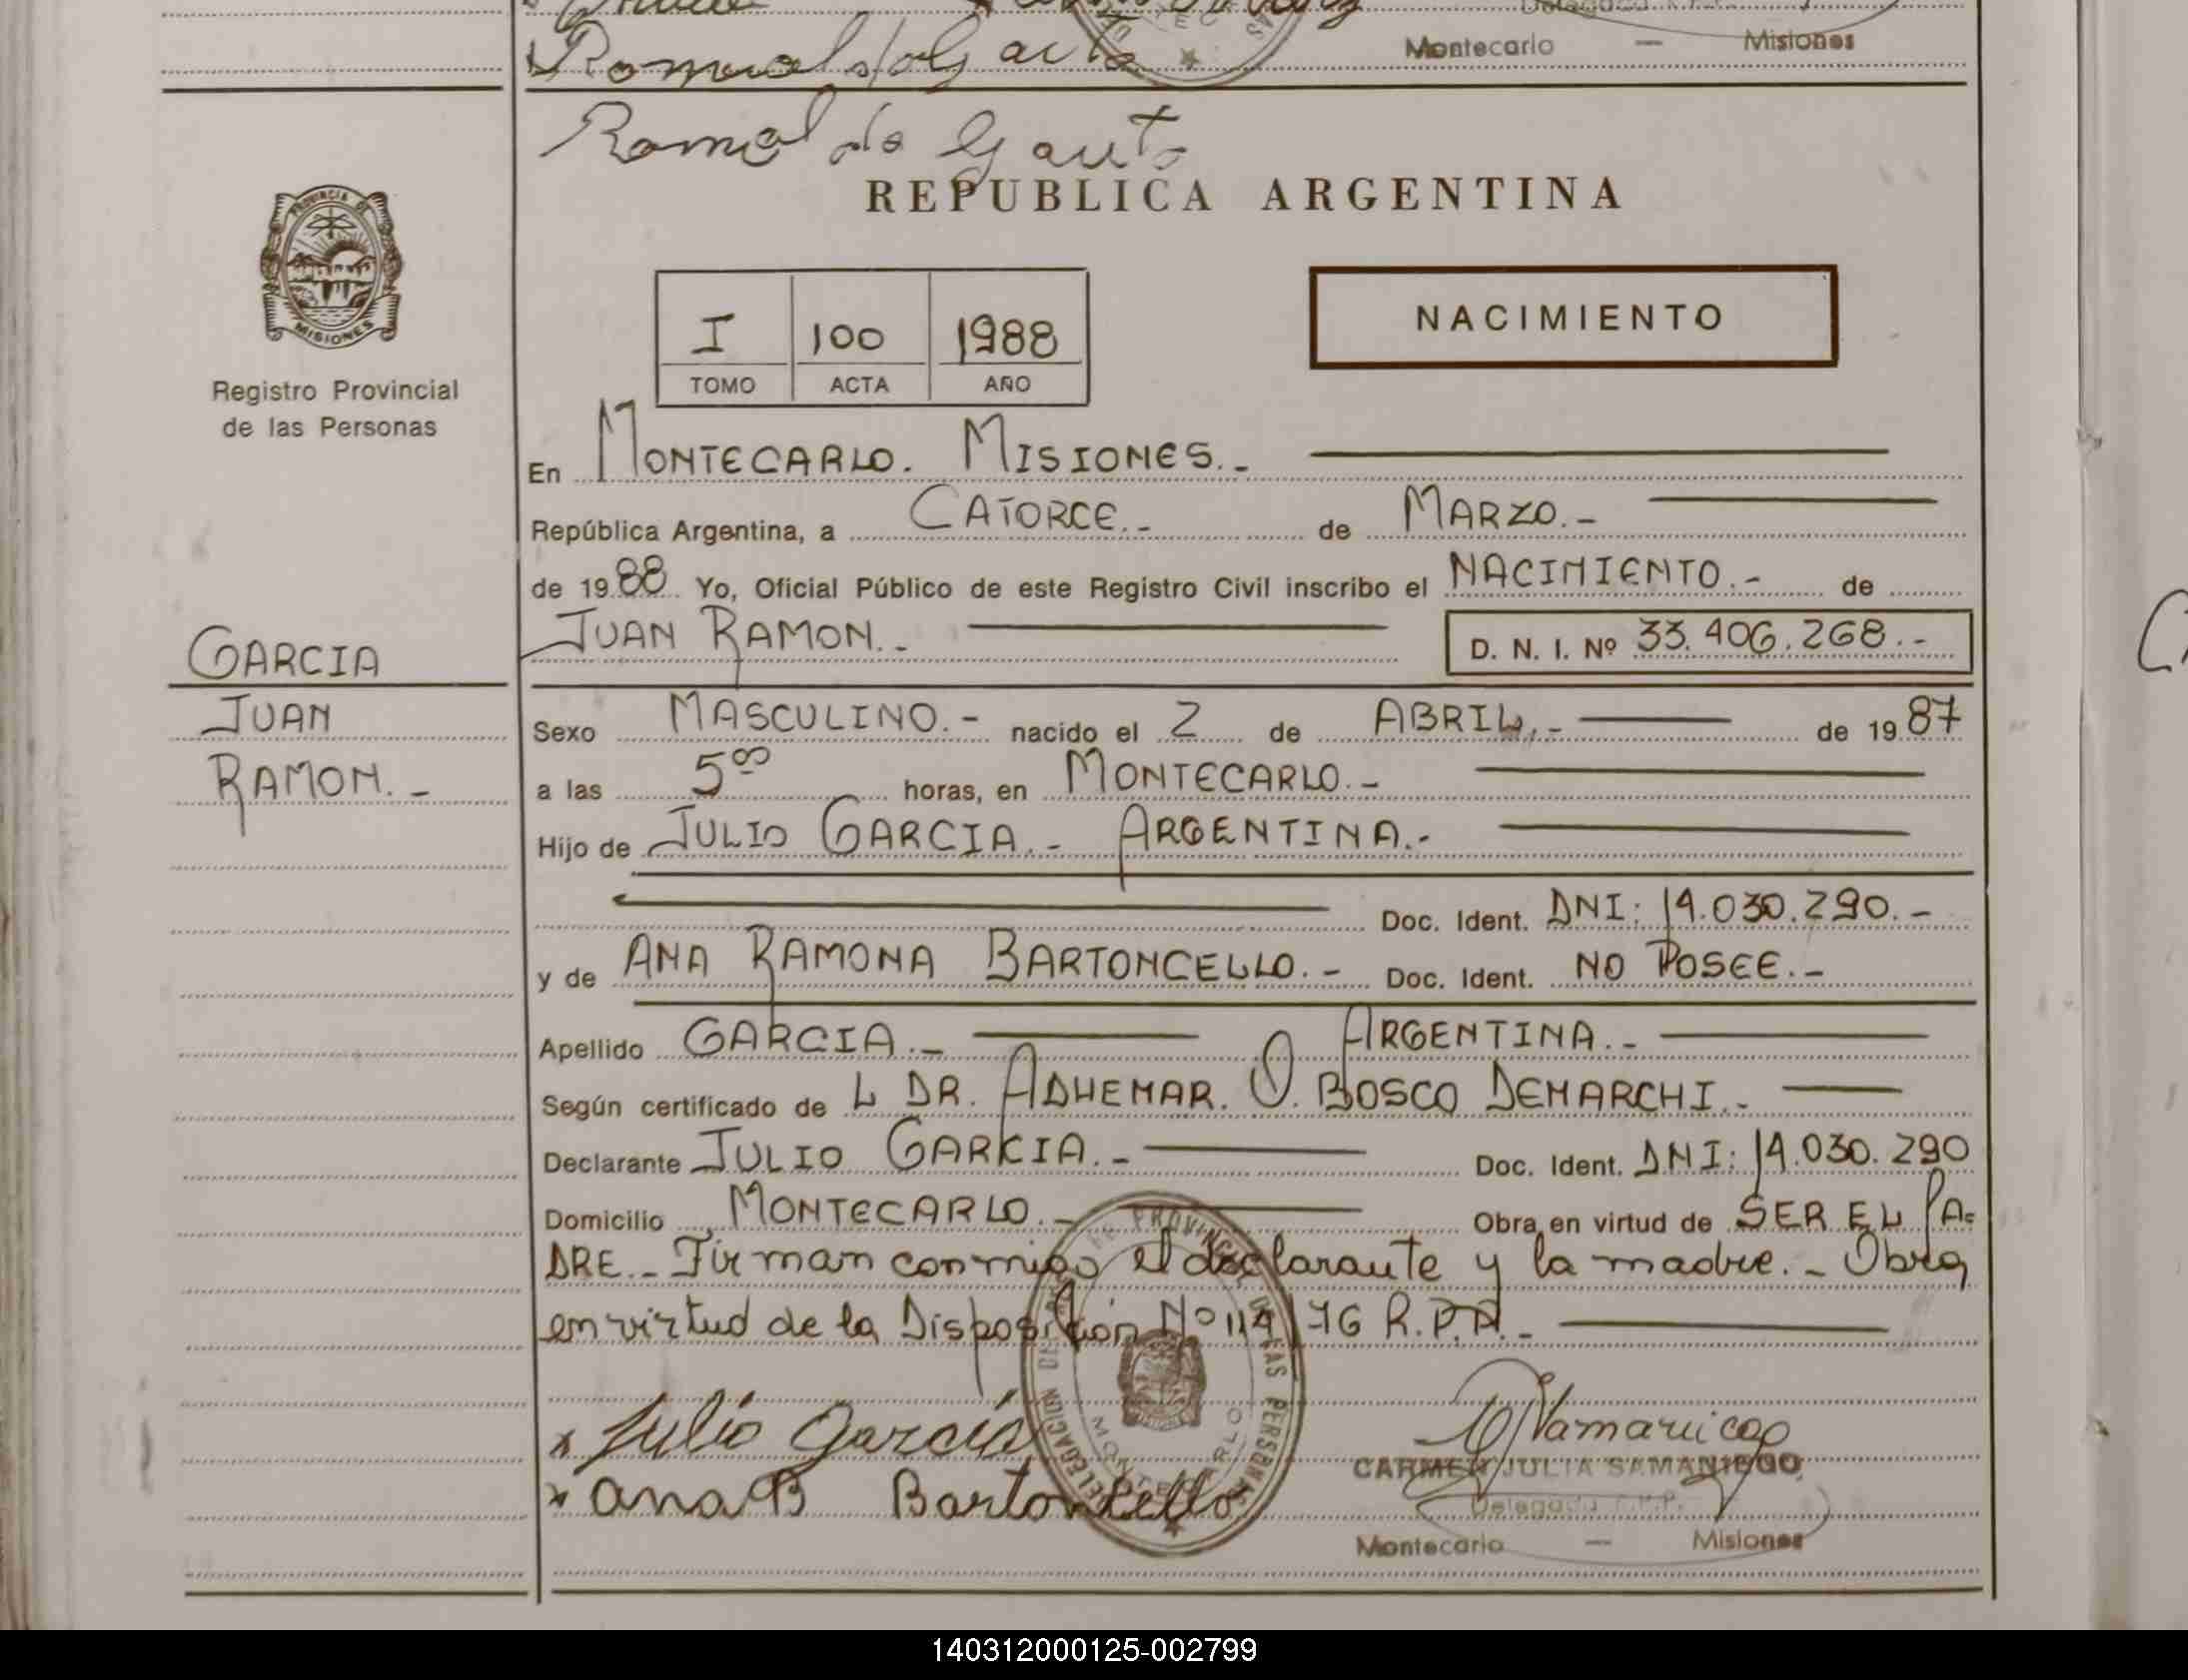 Romualdo Gauto
Montecarlo — Misiones
Romaldo Gauto
REPUBLICA ARGENTINA
PROVINCIA DE
MISIONES
Registro Provincial
de las Personas
I 100 1988
TOMO ACTA AÑO
NACIMIENTO
En MONTECARLO. MISIONES.-
República Argentina, a CATORCE.- de MARZO.-
de 1988 Yo, Oficial Público de este Registro Civil inscribo el NACIMIENTO.- de
JUAN RAMON.- D. N. I. Nº 33.406.268.-
GARCIA
JUAN
RAMON.-
Sexo MASCULINO.- nacido el 2 de ABRIL.- de 1987
a las 5⁰⁰ horas, en MONTECARLO.-
Hijo de JULIO GARCIA.- ARGENTINA.-
Doc. Ident. DNI: 14.030.290.-
y de ANA RAMONA BARTONCELLO.- Doc. Ident. NO POSEE.-
Apellido GARCIA.- ARGENTINA.-
Según certificado de L DR. ADHEMAR. O. BOSCO DEMARCHI.-
Declarante JULIO GARCIA.- Doc. Ident. DNI: 14.030.290
Domicilio MONTECARLO.- Obra en virtud de SER EL PA=
DRE.- Firman conmigo el declarante y la madre.- Obra
en virtud de la Disposición Nº 114/76 R.P.P.-
Julio García
Ana B Bartoncello
CARMEN JULIA SAMANIEGO
Delegada R.P.P.
Montecarlo — Misiones
140312000125-002799